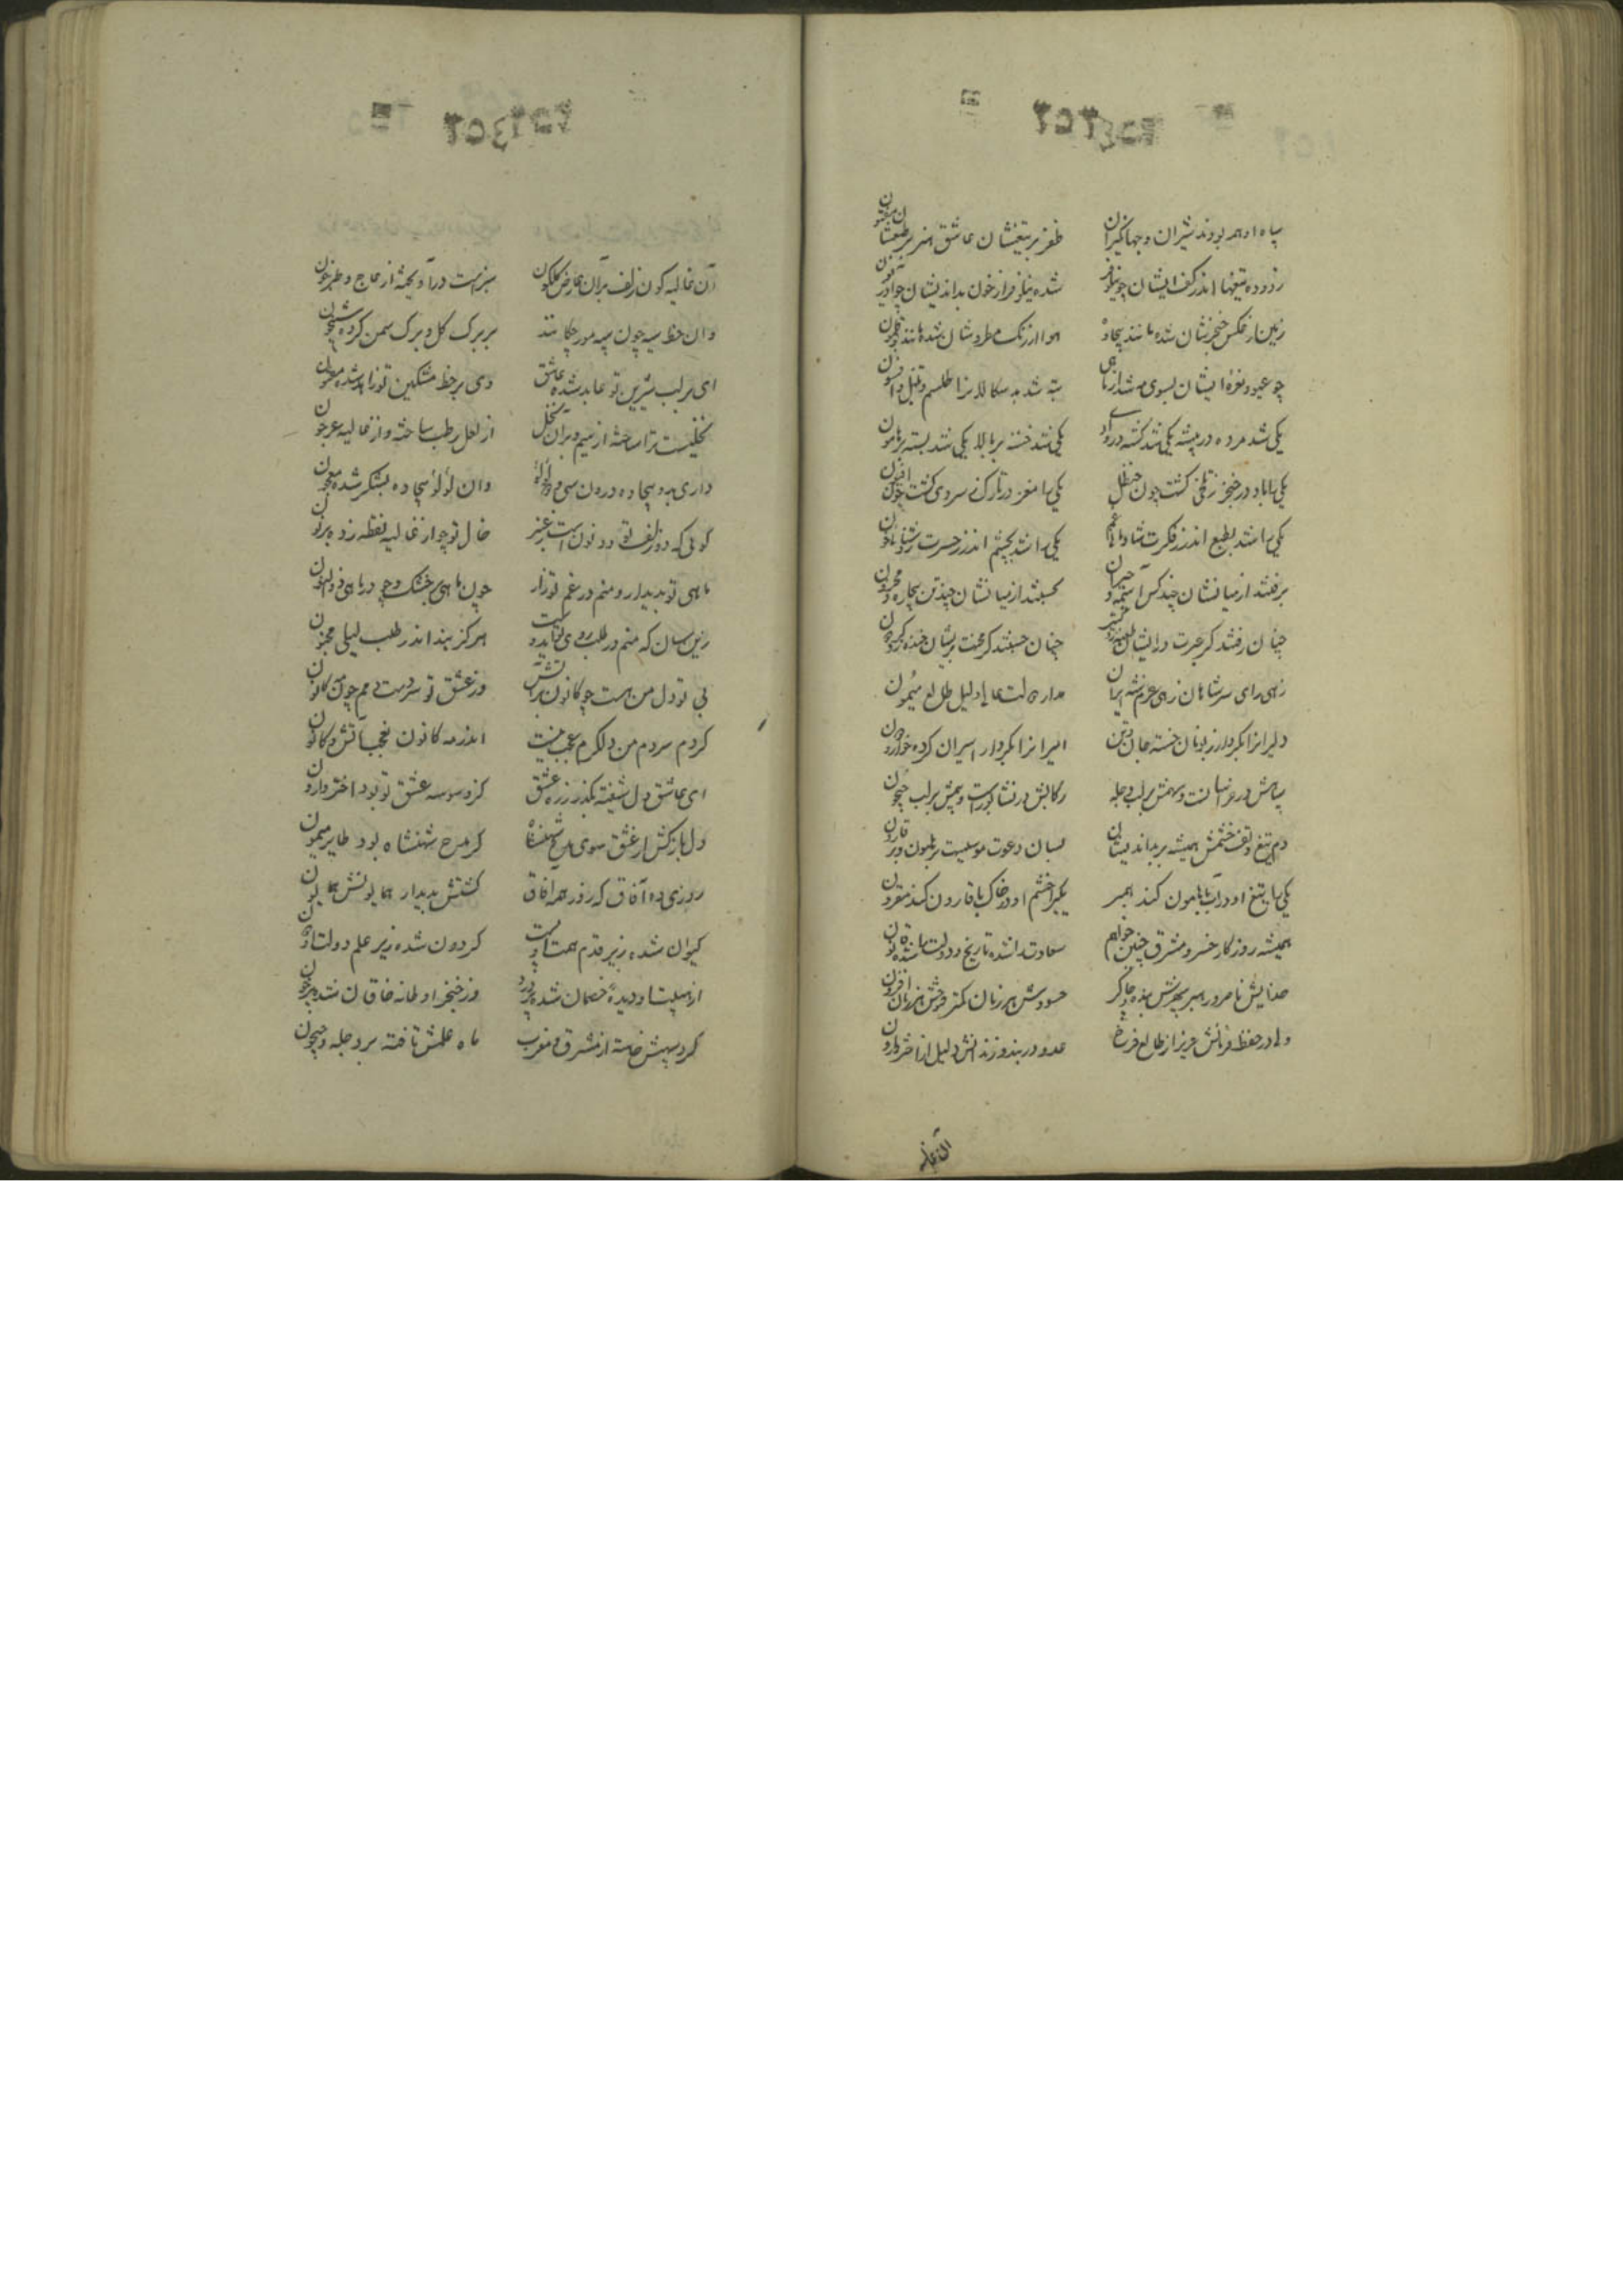 سپاه او همه بودند شیران و جهانگیران ظفر بر تیغشان عاشق هنر بر طبعشان مفتون
زدوده تیغها اندر کف ایشان چو نیلوفر شده نیلوفر از خون بداندیشان چو آذریون
زمین از عکس خنجرشان شده مانند بیجاده هوا از رنگ مطردشان شده مانند بوقلمون
چو عیوق نعره ایشان بسوی مه شد از ماهی تبه شد بدسکالانرا طلسم و تنبل و افسون
یکی شد مرده در بیشه یکی شد کشته در وادی یکی شد خسته بر بالا یکی شد بسته بر هامون
یکی را باد در حنجر ز تلخی کشت چون حنظل یکی را مغز در تارک ز سردی کشت چون افیون
یکی را شد بطبع اندر ز فکرت شادی انده یکی را شد بچشم اندر ز حسرت روشنائی خون
برفتند از میانشان چند کس آسیمه و حیران بجستند از میانشان چند تن بیچاره و محزون
چنان رفتند کز عبرت بدیشان طعنه زد
چنان جستند کز محنت بریشان خنده زد گردون
زهی رای سر شاهان زهی عزم شه ایران مدار دولت عالی دلیل طالع میمون
دلیرانرا بکردار زبونان خسته جان و تن امیرانرا بکردار اسیران کرده خوار و دون
سپاهش در و سهمش بر لب دجله رکابش در نشابورست و بیمش بر لب جیحون
دم تیغ و تف خشمش همیشه بر بداندیشان بسان دعوت موسیست بر هامون و بر قارون
یکی را تیغ او در آب با هامون کند همبر یکیرا خشم او در خاک با قارون کند مقرون
همیشه روزگار خسرو مشرق چنین خواهم سعادت را شده تاریخ و دولت را شده قانون
خدایش ناصر و رهبر سپهرش بنده و چاکر حسودش هر زمان کمتر فتوحش هر زمان افزون
ولی در حفظ فرمانش عزیز از طالع فرخ عدو در بند و زندانش ذلیل از اختر وارون
آن غالیه
آن غالیه گون زلف بر آن عارض گلگون سبزست در آویخته از عاج و طبرخون
وان خط سیه چون سپه مورچگانند بر برگ گل و برگ سمن کرده شبیخون
ای بر لب شیرین تو عابد شده عاشق وی بر خط مشکین تو زاهد شده مفتون
نخلیست ترا ساخته از سیم و بران نخل از لعل رطب ساخته و از غالیه عرجون
داری بدو بیجاده درون سی و دو لؤلؤ وان لؤلؤ بیجاده بشکر شده معجون
گوئی که دو زلف تو دو نون است ز عنبر خال تو چو از غالیه نقطه زده بر نون
ماهی تو بدیدار و منم در غم تو زار چون ماهی بر خشک و چو در ماهی ذوالنون
زین سان که منم در طلب روی تو ایدوست هرگز نبد اندر طلب لیلی مجنون
بی تو دل من هست چو کانون پر آتش وز عشق تو سردست دمم چون مه کانون
گر دم سردم من دل گرم عجب نیست اندر مه کانون نه عجب آتش و کانون
ای عاشق دل شیفته بگذر ز ره عشق کز وسوسه عشق تو بود اختر وارون
دل باز کش از عشق سوی مدح شهنشاه کز مدح شهنشاه بود طایر میمون
روزی ده آفاق که روز همه آفاق گشتش بدیدار همایونش همایون
کیوان شده زیر قدم همت او پست گردون شده زیر علم دولت او دون
از هیبت او دیدهٔ خصمان شده پر درد وز خنجر او خانه خاقان شده پر خون
گرد سپهش خاسته از مشرق و مغرب ماه علمش تافته بر دجله و جیحون